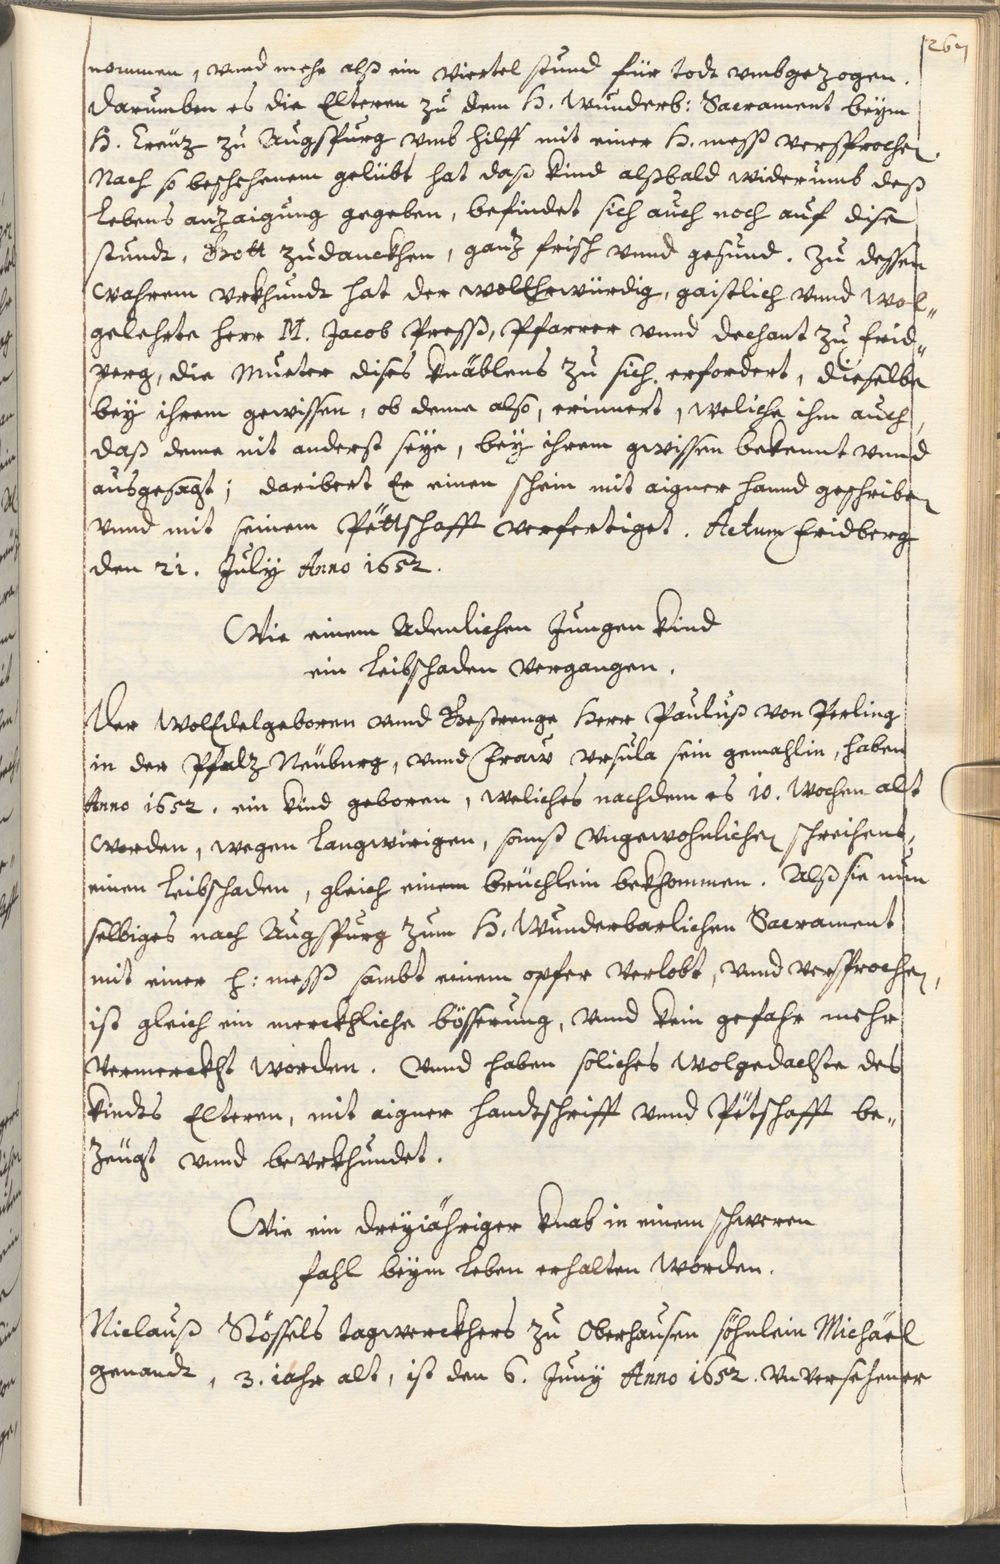 267
nommen, vnnd mehr alß ein viertel stund für todt vmbgezogen.
Darumben es die Elteren zu dem H. Wunderb: Sacrament beÿm
H. Creütz zu Augspurg vmb hilff mit einer H. mess versprochen.
Nach so beschehenem gelübt hat daß kind alßbald widerumb deß
lebens anzaigung gegeben, befindet sich auch noch auf dise
stundt, Gott zudanckhen, gantz frisch vnnd gesund. Zu dessen
wahrem vrkhundt hat der wollEhrwürdig, gaistlich vnnd wol„
gelehrte herr M. Jacob Press, Pfarrer vnnd dechant zu frid„
perg, die Mueter dises knäblens zu sich erfordert, dieselbe
beÿ ihrem gewissen, ob deme also, erinnert, weliche ihm auch,
daß deme nit anderst seÿe, beÿ ihrem gewissen bekennt vnnd
ausgesagt; daribert Er einen schein mit aigner hannd geschriben
vnnd mit seinem Pëttschafft verfertiget. Actum fridberg
den 21. Julÿ Anno 1652.
Wie einem Adenlichen Jungen kind
ein leibschaden vergangen.
Der WolEdelgeboren vnnd Gestrenge Herr Pauluß von Perling
in der Pfaltz Neuburg, vnnd fraw vrsula sein gemahlin, haben
Anno 1652. ein kind geboren, weliches nachdem es 10. Wochen alt
worden, wegen langwirigen, sonst vngewohnlichen schreihens,
einen leibschaden, gleich einem brüchlein bekhommen. Alß sie nun
selbiges nach Augspurg zum H. Wunderbarlichen Sacrament
mit einer h: mess sambt einem opfer verlobt, vnnd versprochen,
ist gleich ein merckhliche bösserung, vnnd kein gefahr mehr
vermerckht worden. Vnnd haben soliches wolgedachte des
kindts Elteren, mit aigner handtschrifft vnnd Pëtschafft be„
zeügt vnnd bevrkhundet.
Wie ein dreÿjähriger knab in einem schweren
fahl beÿm leben erhalten worden.
Niclauß Stössels tagwerckhers zu Oberhausen söhnlein Michäel
genandt, 3. iahr alt, ist den 6. Junÿ Anno 1652. vnversehener